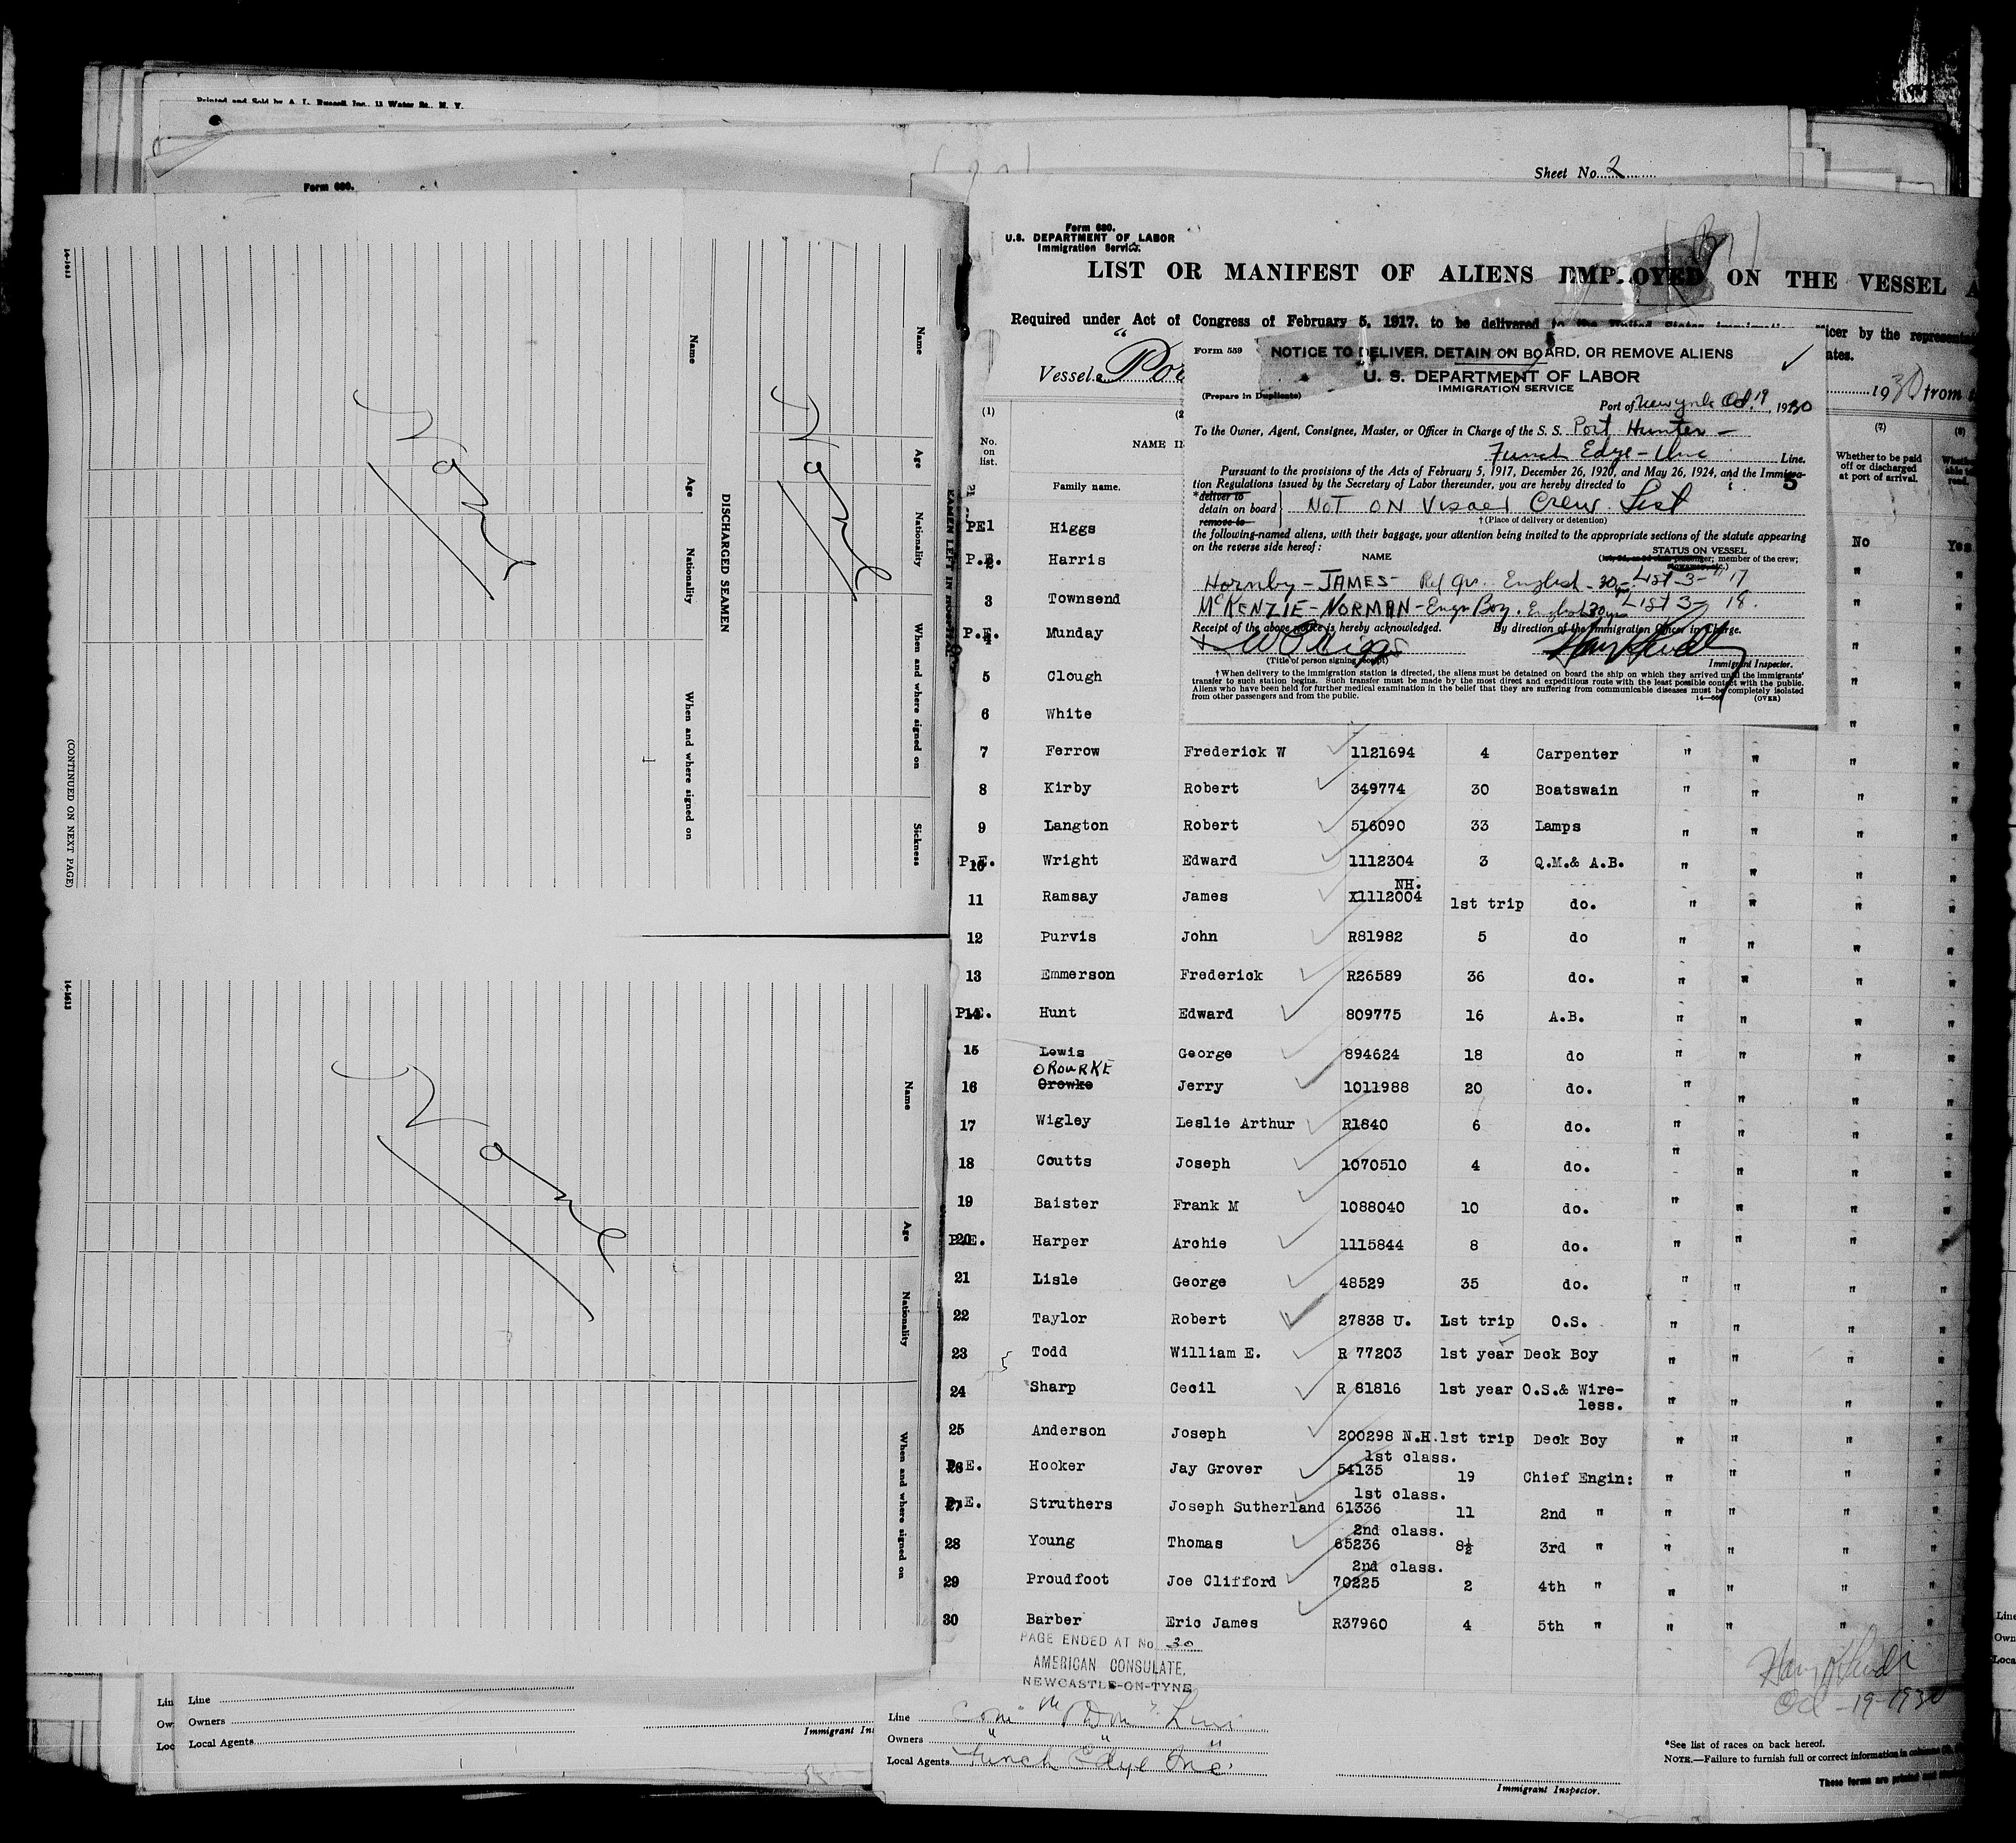 Printed and Sold by A. L. Russell, Inc., 13 Water St., N. Y.
Form 680.
Sheet No. 2
14-1613
Name
Age
Nationality
When and where signed on
Sickness
DISCHARGED SEAMEN
Name
Age
Nationality
When and where signed on
None
None
(CONTINUED ON NEXT PAGE)
14-1613
Name
Age
Nationality
When and where signed on
None
Line
Owners
Local Agents
Form 680.
U.S. DEPARTMENT OF LABOR
Immigration Service.
LIST OR MANIFEST OF ALIENS EMPLOYED ON THE VESSEL
Required under Act of Congress of February 5, 1917, to be delivered
Vessel
1930 from
Form 559
NOTICE TO DELIVER, DETAIN ON BOARD, OR REMOVE ALIENS
U. S. DEPARTMENT OF LABOR
IMMIGRATION SERVICE
(Prepare in Duplicate)
Port of New York Oct. 19, 1930
To the Owner, Agent, Consignee, Master, or Officer in Charge of the S. S. Port Hunter -
Funch Edye - Inc Line.
Pursuant to the provisions of the Acts of February 5, 1917, December 26, 1920, and May 26, 1924, and the Immigra-
tion Regulations issued by the Secretary of Labor thereunder, you are hereby directed to
*deliver to
detain on board } NOT ON Visaed Crew List
remove to
† (Place of delivery or detention)
the following-named aliens, with their baggage, your attention being invited to the appropriate sections of the statute appearing
on the reverse side hereof:
NAME
STATUS ON VESSEL
Hornby - JAMES - English - 30 - List 3 - 17
McKENZIE - NORMAN - Engr Boy. English List 3 - 18.
Receipt of the above notice is hereby acknowledged. By direction of the Immigration Officer in Charge.
(Title of person signing receipt)
Immigrant Inspector.
† When delivery to the immigration station is directed, the aliens must be detained on board the ship on which they arrived until the immigrants'
transfer to such station begins. Such transfer must be made by the most direct and expeditious route with the least possible contact with the public.
Aliens who have been held for further medical examination in the belief that they are suffering from communicable diseases must be completely isolated
from other passengers and from the public.
(OVER)
(1) No. on list.
Family name.
(7) Whether to be paid off or discharged at port of arrival.
(8)
P.E. 1 Higgs No Yes
P.E. 2 Harris " "
3 Townsend " "
P.E. 4 Munday " "
5 Clough " "
6 White " "
7 Ferrow Frederick W 1121694 4 Carpenter " " " "
8 Kirby Robert 349774 30 Boatswain " " " "
9 Langton Robert 516090 33 Lamps " " " "
P.E. 10 Wright Edward 1112304 3 Q.M.& A.B. " " " "
NH.
11 Ramsay James X1112004 1st trip do. " " " "
12 Purvis John R81982 5 do " " " "
13 Emmerson Frederick R26589 36 do. " " " "
P.E. 14 Hunt Edward 809775 16 A.B. " " " "
15 Lewis George 894624 18 do " " " "
OROURKE
16 Orowke Jerry 1011988 20 do. " " " "
17 Wigley Leslie Arthur R1840 6 do. " " " "
18 Coutts Joseph 1070510 4 do. " " " "
19 Baister Frank M 1088040 10 do. " " " "
P.E. 20 Harper Archie 1115844 8 do. " " " "
21 Lisle George 48529 35 do. " " " "
22 Taylor Robert 27838 U. 1st trip O.S. " " " "
23 Todd William E. R 77203 1st year Deck Boy " " " "
24 Sharp Cecil R 81816 1st year O.S.& Wire-
less. " " " "
25 Anderson Joseph 200298 N.H. 1st trip Deck Boy " " " "
1st class.
P.E. 26 Hooker Jay Grover 54135 19 Chief Engin: " " " "
1st class.
P.E. 27 Struthers Joseph Sutherland 61336 11 2nd " " " " "
2nd class.
28 Young Thomas 65236 8½ 3rd " " " " "
2nd class.
29 Proudfoot Joe Clifford 70225 2 4th " " " " "
30 Barber Eric James R37960 4 5th " " " " "
PAGE ENDED AT No. 30
AMERICAN CONSULATE,
NEWCASTLE-ON-TYNE
Oct - 19 - 1930
Line
Owners " " "
Local Agents Funch Edye Inc
Immigrant Inspector.
*See list of races on back hereof.
NOTE.—Failure to furnish full or correct information in columns
These forms are printed and